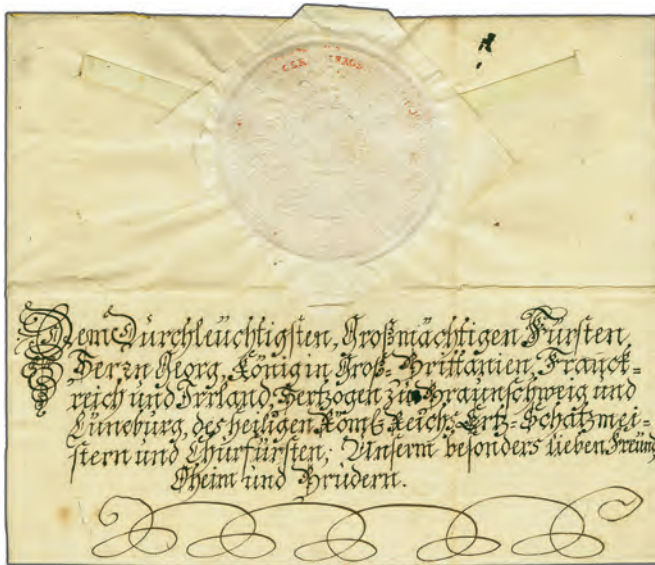 Dem Durchleüchtigsten, Großmächtigen Fürsten,
Herrn Georg, König in Groß-Brittanien, Franck-
reich und Irrland, Hertzogen zu Braunschweig und
Lüneburg, des heiligen Röm: Reichs Ertz-Schatzmei-
stern und Churfürsten, Unserm besonders lieben Freünd,
Oheim und Brüdern.